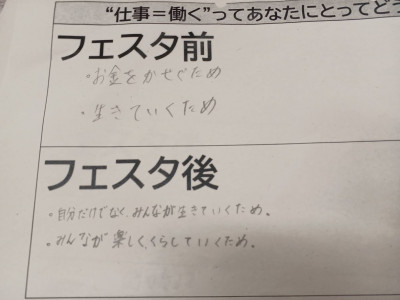 “仕事＝働く”ってあなたにとってど
フェスタ前
・お金をかせぐため
・生きていくため
フェスタ後
・自分だけでなく、みんなが生きていくため。
・みんなが楽しく、くらしていくため。